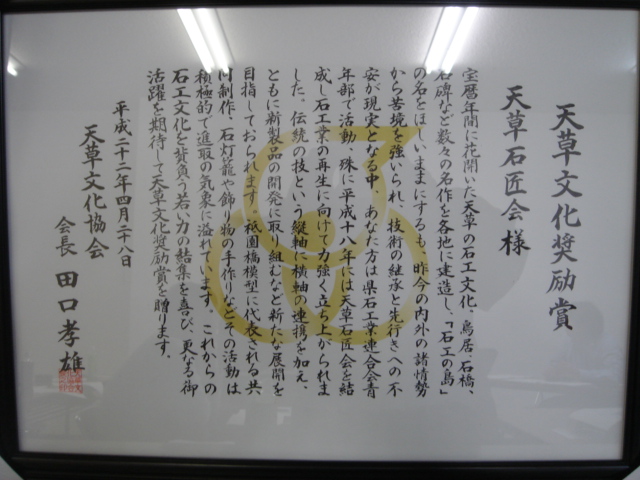 天草文化奨励賞
天草石匠会様
宝暦年間に花開いた天草の石工文化。鳥居、石橋、
石碑など数々の名作を各地に建造し、「石工の島」
の名をほしいままにするも、昨今の内外の諸情勢
から苦境を強いられ、技術の継承と先行きへの不
安が現実となる中 あなた方は県石工業連合会青
年部で活動 殊に平成十八年には天草石匠会を結
成し石工業の再生に向けて力強く立ち上がられま
した。伝統の技という縦軸に横軸の連携を加え、
ともに新製品の開発に取り組むなど新たな展開を
目指しておられます。祇園橋模型に代表される共
同制作、石灯籠や飾り物の手作りなどその活動は
積極的で進取の気象に溢れています。これからの
石工文化を背負う若い力の結集を喜び、更なる御
活躍を期待して天草文化奨励賞を贈ります。
平成二十二年四月二十八日
天草文化協会
会長 田口孝雄